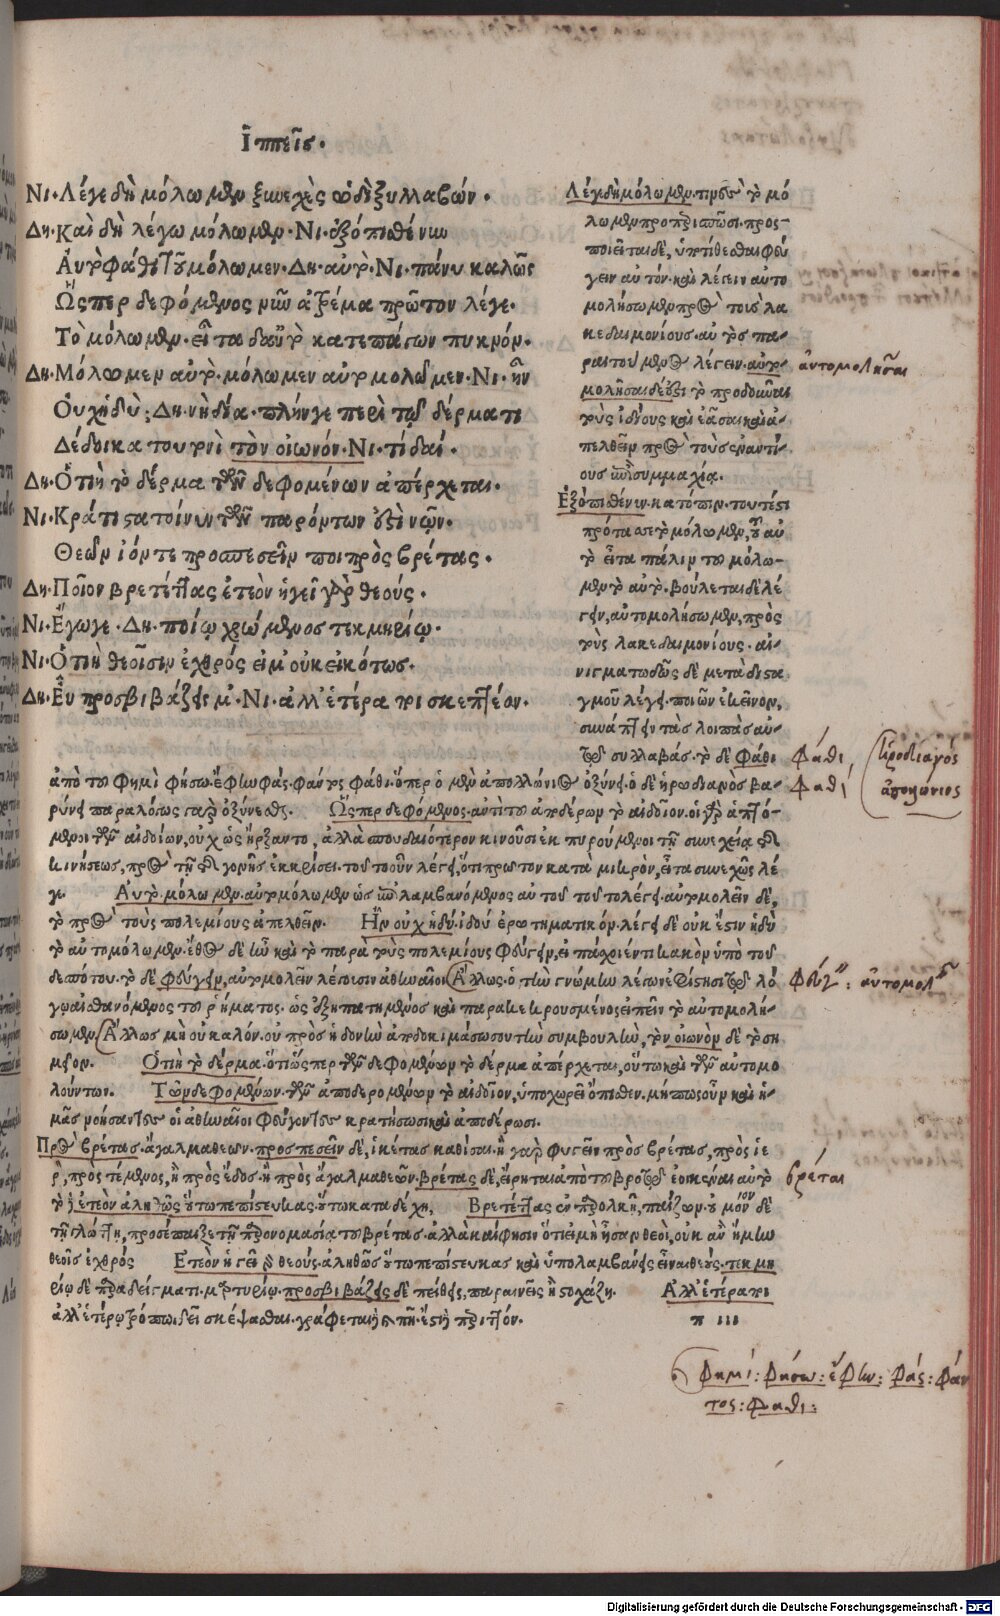 Ἱππεῖσ.
Νι. Λέγε δὴ μόλωμεν ξυνεχὲς ὡδὶ ξυλλαβών.
Δη. Καὶ δὴ λέγω μόλωμεν. Νι. ἐξόπισθέν νυν
Αὐτὸ φάθι τοῦ μόλωμεν. Δη. αὐτό. Νι. πάνυ καλῶς
Ὥςπερ δεφόμενος νῦν ἀτρέμα πρῶτον λέγε.
Τὸ μόλωμεν. εἶτα δ' αὐτὸ κατεπάγων πυκνόν.
Δη. Μόλωμεν αὐτὸ. μόλωμεν αὐτομολῶμεν. Νι. ἢν
Οὐχ ἡδύ; Δη. νὴ δία. πλήνγε περὶ τῷ δέρματι
Δέδοικα τουτονὶ τὸν οἰωνόν. Νι. τί δαί.
Δη. Ὁτιὴ τὸ δέρμα τῶν δεφομένων ἀπέρχεται.
Νι. Κράτιστα τοίνυν τῶν παρόντων ἐστὶ νῷν.
Θεῶν ἰόντε προσπεσεῖν ποι πρὸς βρέτας.
Δη. Ποῖον βρετέτας ἐτεὸν ἡγεῖ γὰρ θεούς.
Νι. Ἔγωγε. Δη. ποίῳ χρώμενος τεκμηρίῳ.
Νι. Ὁτιὴ θεοῖσιν ἐχθρός εἰμ' οὐκ εἰκότως.
Δη. Εὖ προσβιβάζεις μ'. Νι. ἀλλ' ἑτέρα πι σκεπτέον.
Λέγε δὴ μόλωμεν. πρὸς τὸ μό
λωμεν προπεριασπῶσι. προσ-
ποιεῖται δὲ, ὑποτίθεσθαι φεύ
γειν αὐτόν. καὶ λέγειν αὐτο
μολήσωμεν πρὸς τοὺς λα
κεδαιμονίους. αὐτὸς πα-
ραιτούμενος λέγειν. αὐτο-
μολῆσαι δέ ἐστι τὸ προδοῦναι
τοὺς ἰδίους καὶ ἐᾶσαι καὶ ἀ-
πελθεῖν πρὸς τοὺς ἐναντί-
ους ἐπὶ συμμαχίᾳ.
Ἐξόπισθέν νυν. κατόπιν. τουτέστι
πρόταττε τὸ μόλωμεν, τοῦ αὐ
τὸ εἶτα πάλιν τῷ μόλω-
μεν τὸ αὐτό. βούλεται δὲ λέ
γειν, αὐτομολήσωμεν, πρὸς
τοὺς λακεδαιμονίους. αἰ-
νιγματωδῶς δὲ μετὰ δισα
γμοῦ λέγει. ποιῶν ἐκεῖνον,
συνάπτειν τὰς λοιπὰς αὐ-
τοῦ συλλαβάς. τὸ δὲ φάθι
ἀπὸ τοῦ φημὶ φήσω. ἔφην φὰς. φάντος φάθι. ὅπερ ὁ μὲν ἀπολλώνιος ὀξύνει. ὁ δὲ ἡρωδιανὸς βα-
ρύνει παραλόγως γὰρ ὀξύνεσθαι. Ὥςπερ δεφόμενος. ἀντὶ τοῦ ἀποδέρων τὸ αἰδοῖον. οἱ γὰρ ἁπτό-
μενοι τῶν αἰδοίων, οὐχ ὡς ἤρξαντο, ἀλλὰ σπουδαιότερον κινοῦσι ἐκπυρούμενοι τῇ συνεχίᾳ τῆς
κινήσεως, πρὸς τὴν τῆς γονῆς ἔκκρισιν. τοῦτο οὖν λέγει, ὅτι πρῶτον κατὰ μικρὸν, εἶτα συνεχῶς λέ
γε. Αὐτὸ μόλωμεν. αὐτομόλωμεν ὡς ὑπολαμβανόμενος αὐτοῦ τοῦτο λέγει. αὐτομολεῖν δὲ,
τὸ πρὸς τοὺς πολεμίους ἀπελθεῖν. Ἢν οὐχ ἡδύ. ἰδού ἐρωτηματικόν. λέγει δὲ οὐκ ἔστιν ἡδὺ
τὸ αὐτομόλωμεν. ἔθος δὲ ἦν καὶ τὸ παρὰ τοὺς πολεμίους φεύγειν, εἰ πάσχοιέν τι κακὸν ὑπὸ τοῦ
δεσπότου. τὸ δὲ φεύγειν, αὐτομολεῖν λέγουσιν ἀθηναῖοι. Ἄλλως. ὁ τὴν γνώμην λέγων ἐφίστησι τῷ λό
γῳ αἰσθανόμενος τοῦ ῥήματος. ὡς ἐξηπατημένος καὶ παρακεκρουσμένος εἰπεῖν τὸ αὐτομολή-
σωμεν. Ἄλλως μὴ οὐ καλόν. οὐ πρὸς ἡδονὴν ἀποδοκιμάσω σου τὴν συμβουλὴν, τὸν οἰωνὸν δὲ τὸ ση
μεῖον. Ὁτιὴ τὸ δέρμα. ὅτι ὥςπερ τῶν δεφομένων τὸ δέρμα ἀπέρχεται, οὕτω καὶ τῶν αὐτομο
λούντων. Τῶν δεφομένων. τῶν ἀποδερομένων τὸ αἰδοῖον, ὑποχωρεῖ ὄπισθεν. μήπως οὖν καὶ ἡ-
μᾶς νοήσαντες οἱ ἀθηναῖοι φεύγοντας κρατήσωσι καὶ ἀποδέρωσι.
Πρὸς βρέτας. ἄγαλμα θεῶν. προσπεσεῖν δὲ, ἱκέτας καθίσαι. ἢ γὰρ φυγεῖν πρὸς βρέτας, πρὸς ἱε
ρὸν, πρὸς τέμενος, ἢ πρὸς ἕδος. ἢ πρὸς ἄγαλμα θεῶν. βρέτας δὲ, εἴρηται ἀπὸ τοῦ βροτῷ ἐοικέναι αὐτὸ
τὸ ἐτεὸν ἀληθῶς οὕτω πεπίστευκας. οὕτω κατὰ δέχῃ. Βρετέτας ἐν παρολκῇ, παίζων. οὐ μόνον δὲ
τῇ γλώττῃ, προσέπαιξε τῇ παρονομασίᾳ τοῦ βρέτας. ἀλλὰ καί φησιν ὅτι εἰ μὴ ἦσαν θεοὶ, οὐκ ἂν ἤμην
θεοῖς ἐχθρός Ἐτεὸν ἡγεῖ γὰρ θεούς. ἀληθῶς οὕτω πεπίστευκας καὶ ὑπολαμβάνεις εἶναι θεούς. τεκμη
ρίῳ δὲ παραδείγματι. μαρτυρίῳ. προσβιβάζεις δὲ πείθεις, παραινεῖς ἢ στοχάζῃ. Ἀλλ' ἑτέρα πι
ἀλλ' ἑτέρῳ τρόπῳ δεῖ σκέψασθαι. γράφεται ἢ πῆ. ἔστι ἢ περιττόν.
π iii
ἀυτομολῆσαι
Φάθι
Φαθί
ἡροδιανός
ἀπολώνιος
φεύγειν : ἀυτομολεῖν
βρέτας
φημί: φήσω: ἔφην: φάς: φάν
τος: φαθι:
Digitalisierung gefördert durch die Deutsche Forschungsgemeinschaft - DFG